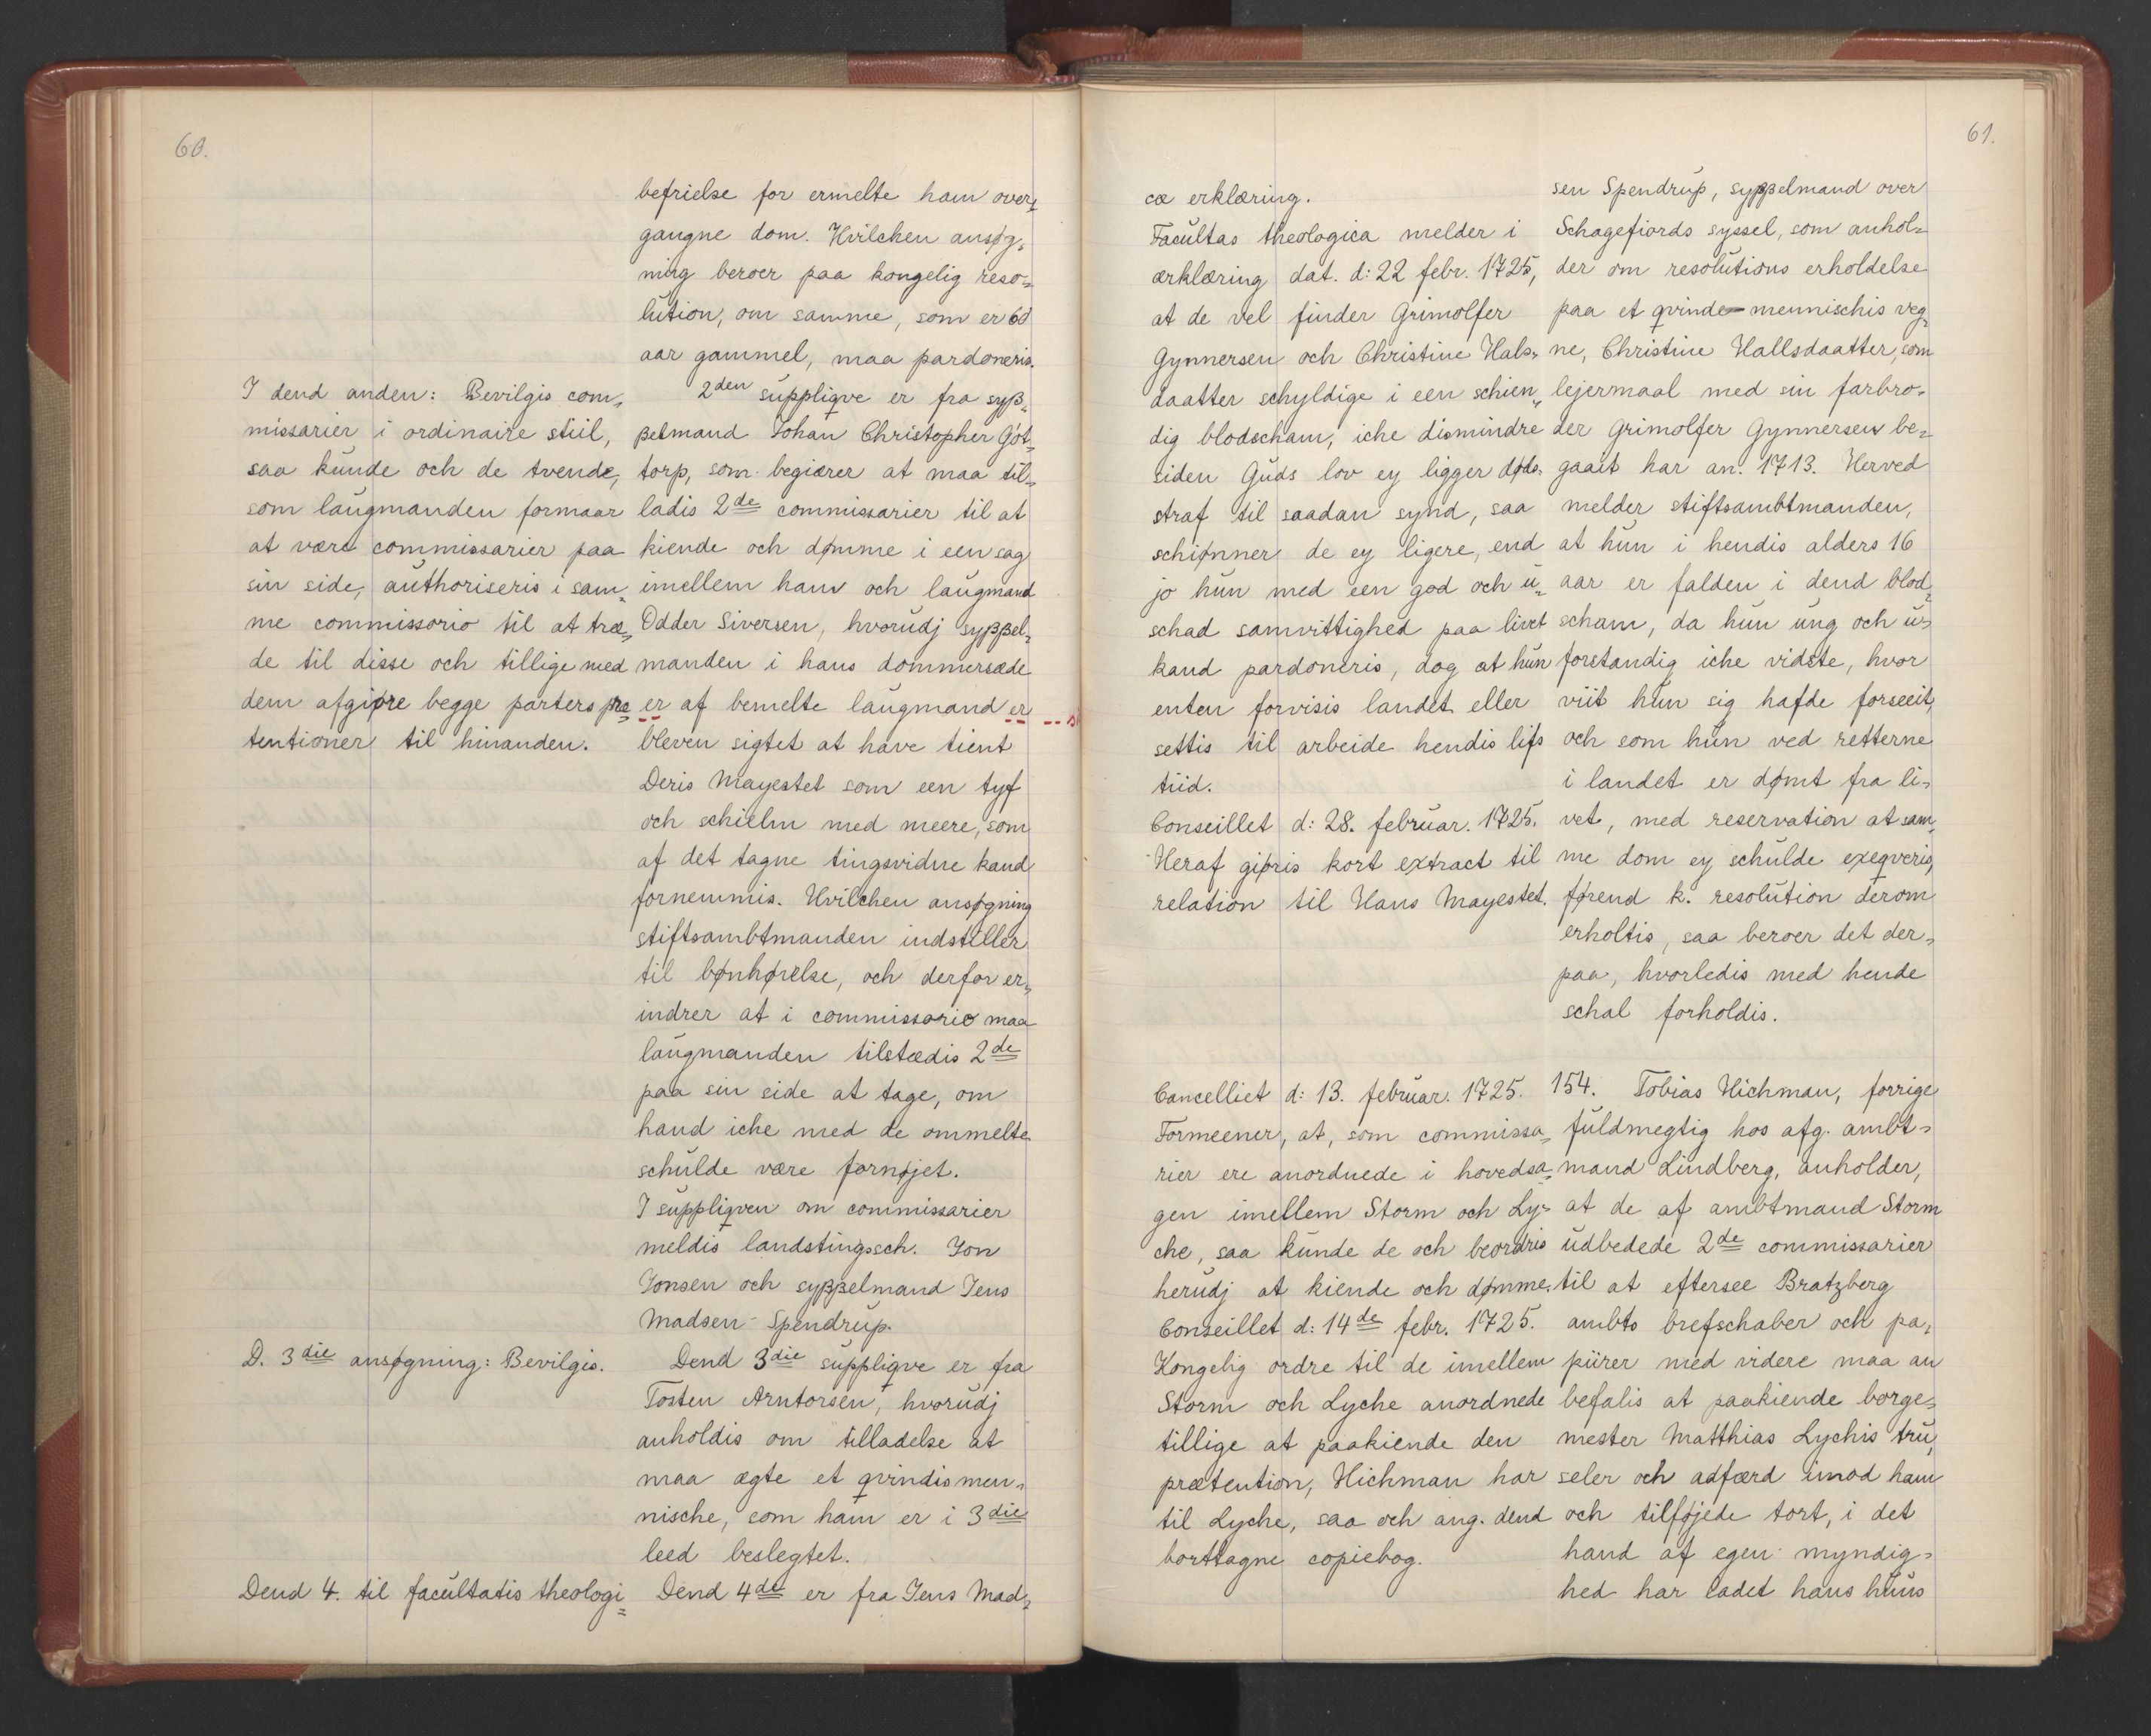 60.
befrielse for ermelte ham over=
gangne dom. Hvilchen ansøg=
ning beroer paa kongelig reso=
lution, om samme, som er 60
aar gammel, maa pardoneris.
2den suppliqve er fra syß=
ßelmand Johan Christopher Got=
torp, som begiærer at maa til=
ladis 2de commissarier til at
kiende och dømme i een sag
imellem ham och laugmand
Odder Siversen, hvorudj syßßel=
manden i hans dommersæde
er af bemelte laugmand er
bleven sigtet at have tient
Deris Mayestet som een tyf
och schielm med meere, som
af det tagne tingsvidne kand
fornemmis. Hvilchen ansøgning
stiftsambtmanden indstiller
til bønhørelse, och derfor er=
indrer at i commissorio maa
laugmanden tilstædis 2de
paa sin side at tage, om
hand iche med de ommelte
schulde være fornøjet.
I suppliqven om commissarier
meldis landstingssch. Jon
Jonsen och syßßelmand Jens
Madsen Spendrup.
Dend 3die suppliqve er fra
Tosten Arntorsen, hvorudj
anholdis om tilladelse at
maa ægte et qvindismen=
nische, som ham er i 3die
leed beslegtet.
Dend 4de er fra Jens Mad=
I dend anden: Bevilgis com=
missarier i ordinaire stiil,
saa kunde och de tvende,
som laugmanden formaar
at være commissarier paa
sin side, authoriseris i sam=
me commissorio til at træ=
de til disse och tillige med
dem afgiøre begge parters præ
tentioner til hinanden.
D. 3die ansøgning: Bevilgis.
Dend 4. til facultatis theologi=
61.
cæ erklæring.
Facultas theologica melder i
ærklæring dat. d: 22 febr. 1725,
at de vel finder Grimolfer
Gynnersen och Christine Hals=
daatter schyldige i een schien=
dig blodscham, iche dismindre
siden Guds lov ey ligger døds=
straf til saadan synd, saa
schiønner de ey ligere, end
jo hun med een god och u=
schad samvittighed paa livet
kand pardoneris, dog at hun
enten forvisis landet eller
settis til arbeide hendis lifs
tiid.
Conseillet d: 28. februar. 1725.
Heraf giøris kort extract til
relation til Hans Mayestet.
sen Spendrup, syßßelmand over
Schagefiords syssel, som anhol=
der om resolutions erholdelse
paa et qvinde-mennischis veg=
ne, Christine Hallsdaatter, som
lejermaal med sin farbro=
der Grimolfer Gynnersen be=
gaait har an. 1713. Herved
melder stiftsambtmanden,
at hun i hendis alders 16
aar er falden i dend blod=
scham, da hun ung och u=
forstandig iche vidste, hvor
viit hun sig hafde forseeit,
och som hun ved retterne
i landet er dømt fra li=
vet, med reservation at sam=
me dom ey schulde exeqveris,
førend k. resolution derom
erholtis, saa beroer det der=
paa, hvorledis med hende
schal forholdis.
Cancelliet d: 13. februar. 1725.
Formeener, at, som commissa=
rier ere anordnede i hovedsa=
gen imellem Storm och Ly=
che, saa kunde de och beordris
herudj at kiende och dømme.
Conseillet d: 14de febr. 1725.
Kongelig ordre til de imellem
Storm och Lyche anordnede
tillige at paakiende den
prætention, Hichman har
til Lyche, saa och ang. dend
borttagne copiebog.
154. Tobias Hichman, forrige
fuldmegtig hos afg. ambt=
mand Lindberg, anholder,
at de af ambtmand Storm
udbedede 2de commissarier
til at eftersee Bratzberg
ambts brefschaber och pa=
piirer med videre maa an
befalis at paakiende borge=
mester Matthias Lychis tru=
seler och adfærd imod ham
och tilføjede tort, i det
hand af egen myndig=
hed har ladet hans huus